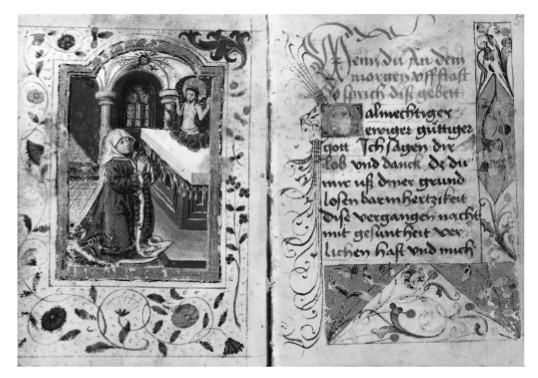 Wenn du An dem
morgen vffstast
so sprich dise gebett
almechtiger
ewiger güttiger
gott Ich sagen dir
lob vnd danck dz du
mir uß diner grund
losen barmhertzikeit
dise vergangen nacht
mit gesuntheit ver
lichen hast vnd mich